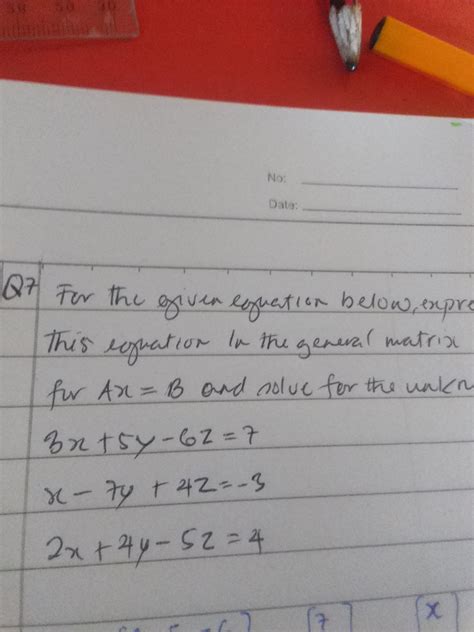 No:
Date:
Q7 For the given equation below, expre
this equation in the general matrix
for Ax = B and solve for the unkn
3x + 5y - 6z = 7
x - 7y + 4z = -3
2x + 4y - 5z = 4
7 x